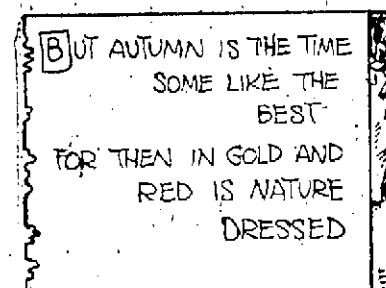 BUT AUTUMN IS THE TIME
SOME LIKE THE
BEST
FOR THEN IN GOLD AND
RED IS NATURE
DRESSED